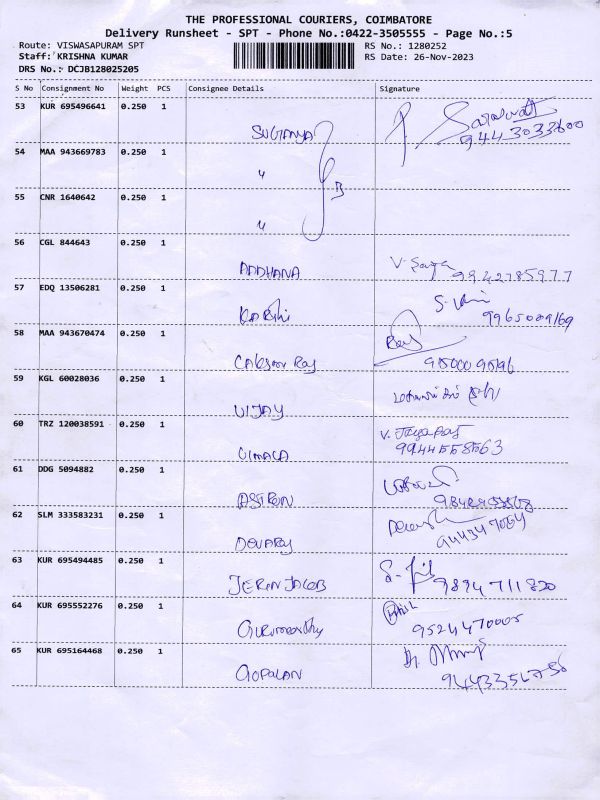 THE PROFESSIONAL COURIERS, COIMBATORE
Delivery Runsheet - SPT - Phone No.:0422-3505555 - Page No.:5
Route: VISWASAPURAM SPT RS No.: 1280252
Staff: KRISHNA KUMAR RS Date: 26-Nov-2023
DRS No.: DCJB128025205
S No Consignment No Weight PCS Consignee Details Signature
53 KUR 695496641 0.250 1 SUGANYA
54 MAA 943669783 0.250 1 "
55 CNR 1640642 0.250 1 "
56 CGL 844643 0.250 1 AADHANA 9942785977
57 EDQ 13506281 0.250 1
58 MAA 943670474 0.250 1 Raj
59 KGL 60028036 0.250 1 VIJAY
60 TRZ 120038591 0.250 1 VIMALA V. Jayaraj 9944558563
61 DDG 5094882 0.250 1
62 SLM 333583231 0.250 1
63 KUR 695494485 0.250 1 JERIN JACOB 9894711820
64 KUR 695552276 0.250 1 Gurumoorthy 9524470005
65 KUR 695164468 0.250 1 GOPALAN